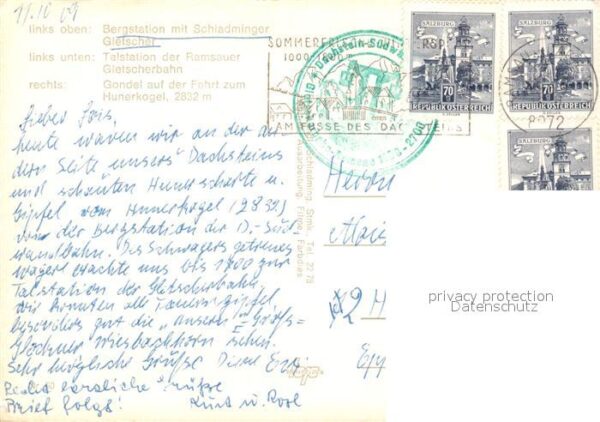 11.10.69
links oben: Bergstation mit Schladminger
Gletscher
links unten: Talstation der Ramsauer
Gletscherbahn
rechts: Gondel auf der Fahrt zum
Hunerkogel, 2832 m
Lieber
heute waren wir an der an
dern Seite unseres Dachsteins
und schauten Hunerscharte u.
Gipfel vom Hunerkogel (2832)
von der Bergstation der D.-Süd
wandbahn. Des Schwagers getreues
brachte uns bis 1700 zur
Talstation der Gletscherbahn,
wir konnten alle Tauerngipfel,
besonders gut die "unsern" Groß-
glockner Wiesbachhorn sehen.
Sehr herzliche Grüße
Recht herzliche Grüße
Brief folgt! Kurt u.
SOMMERFRISCHE
AM FUSSE DES DACHSTEINS
Dachstein-Südwa
2700
8972
SALZBURG
70
REPUBLIK ÖSTERREICH
SALZBURG
70
REPUBLIK ÖSTERREICH
SALZBURG
Schladming Stmk. Tel. 22 79
Herrn
privacy protection
Datenschutz